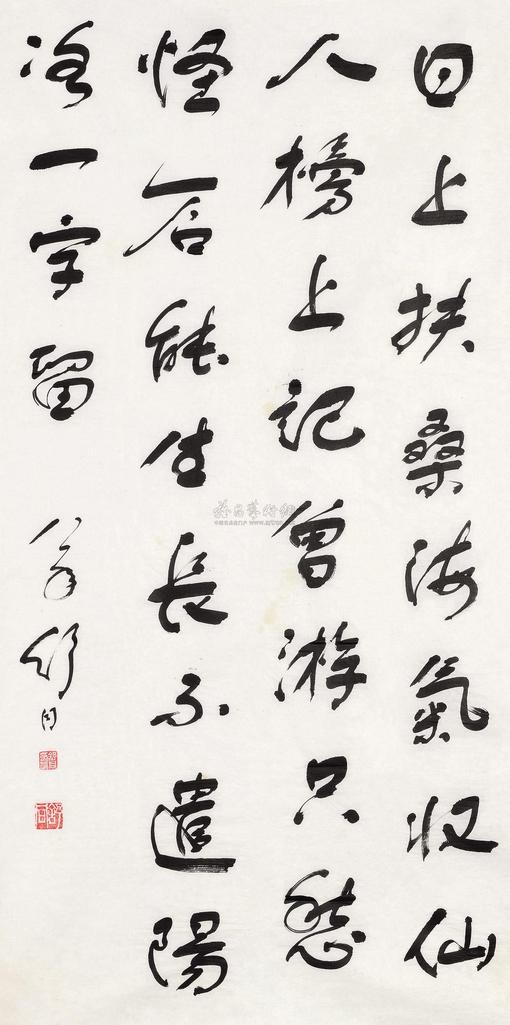 日上扶桑海氣収仙
人榜上記曾游只愁
怪石能生長不遣陽
冰一字留
舒同